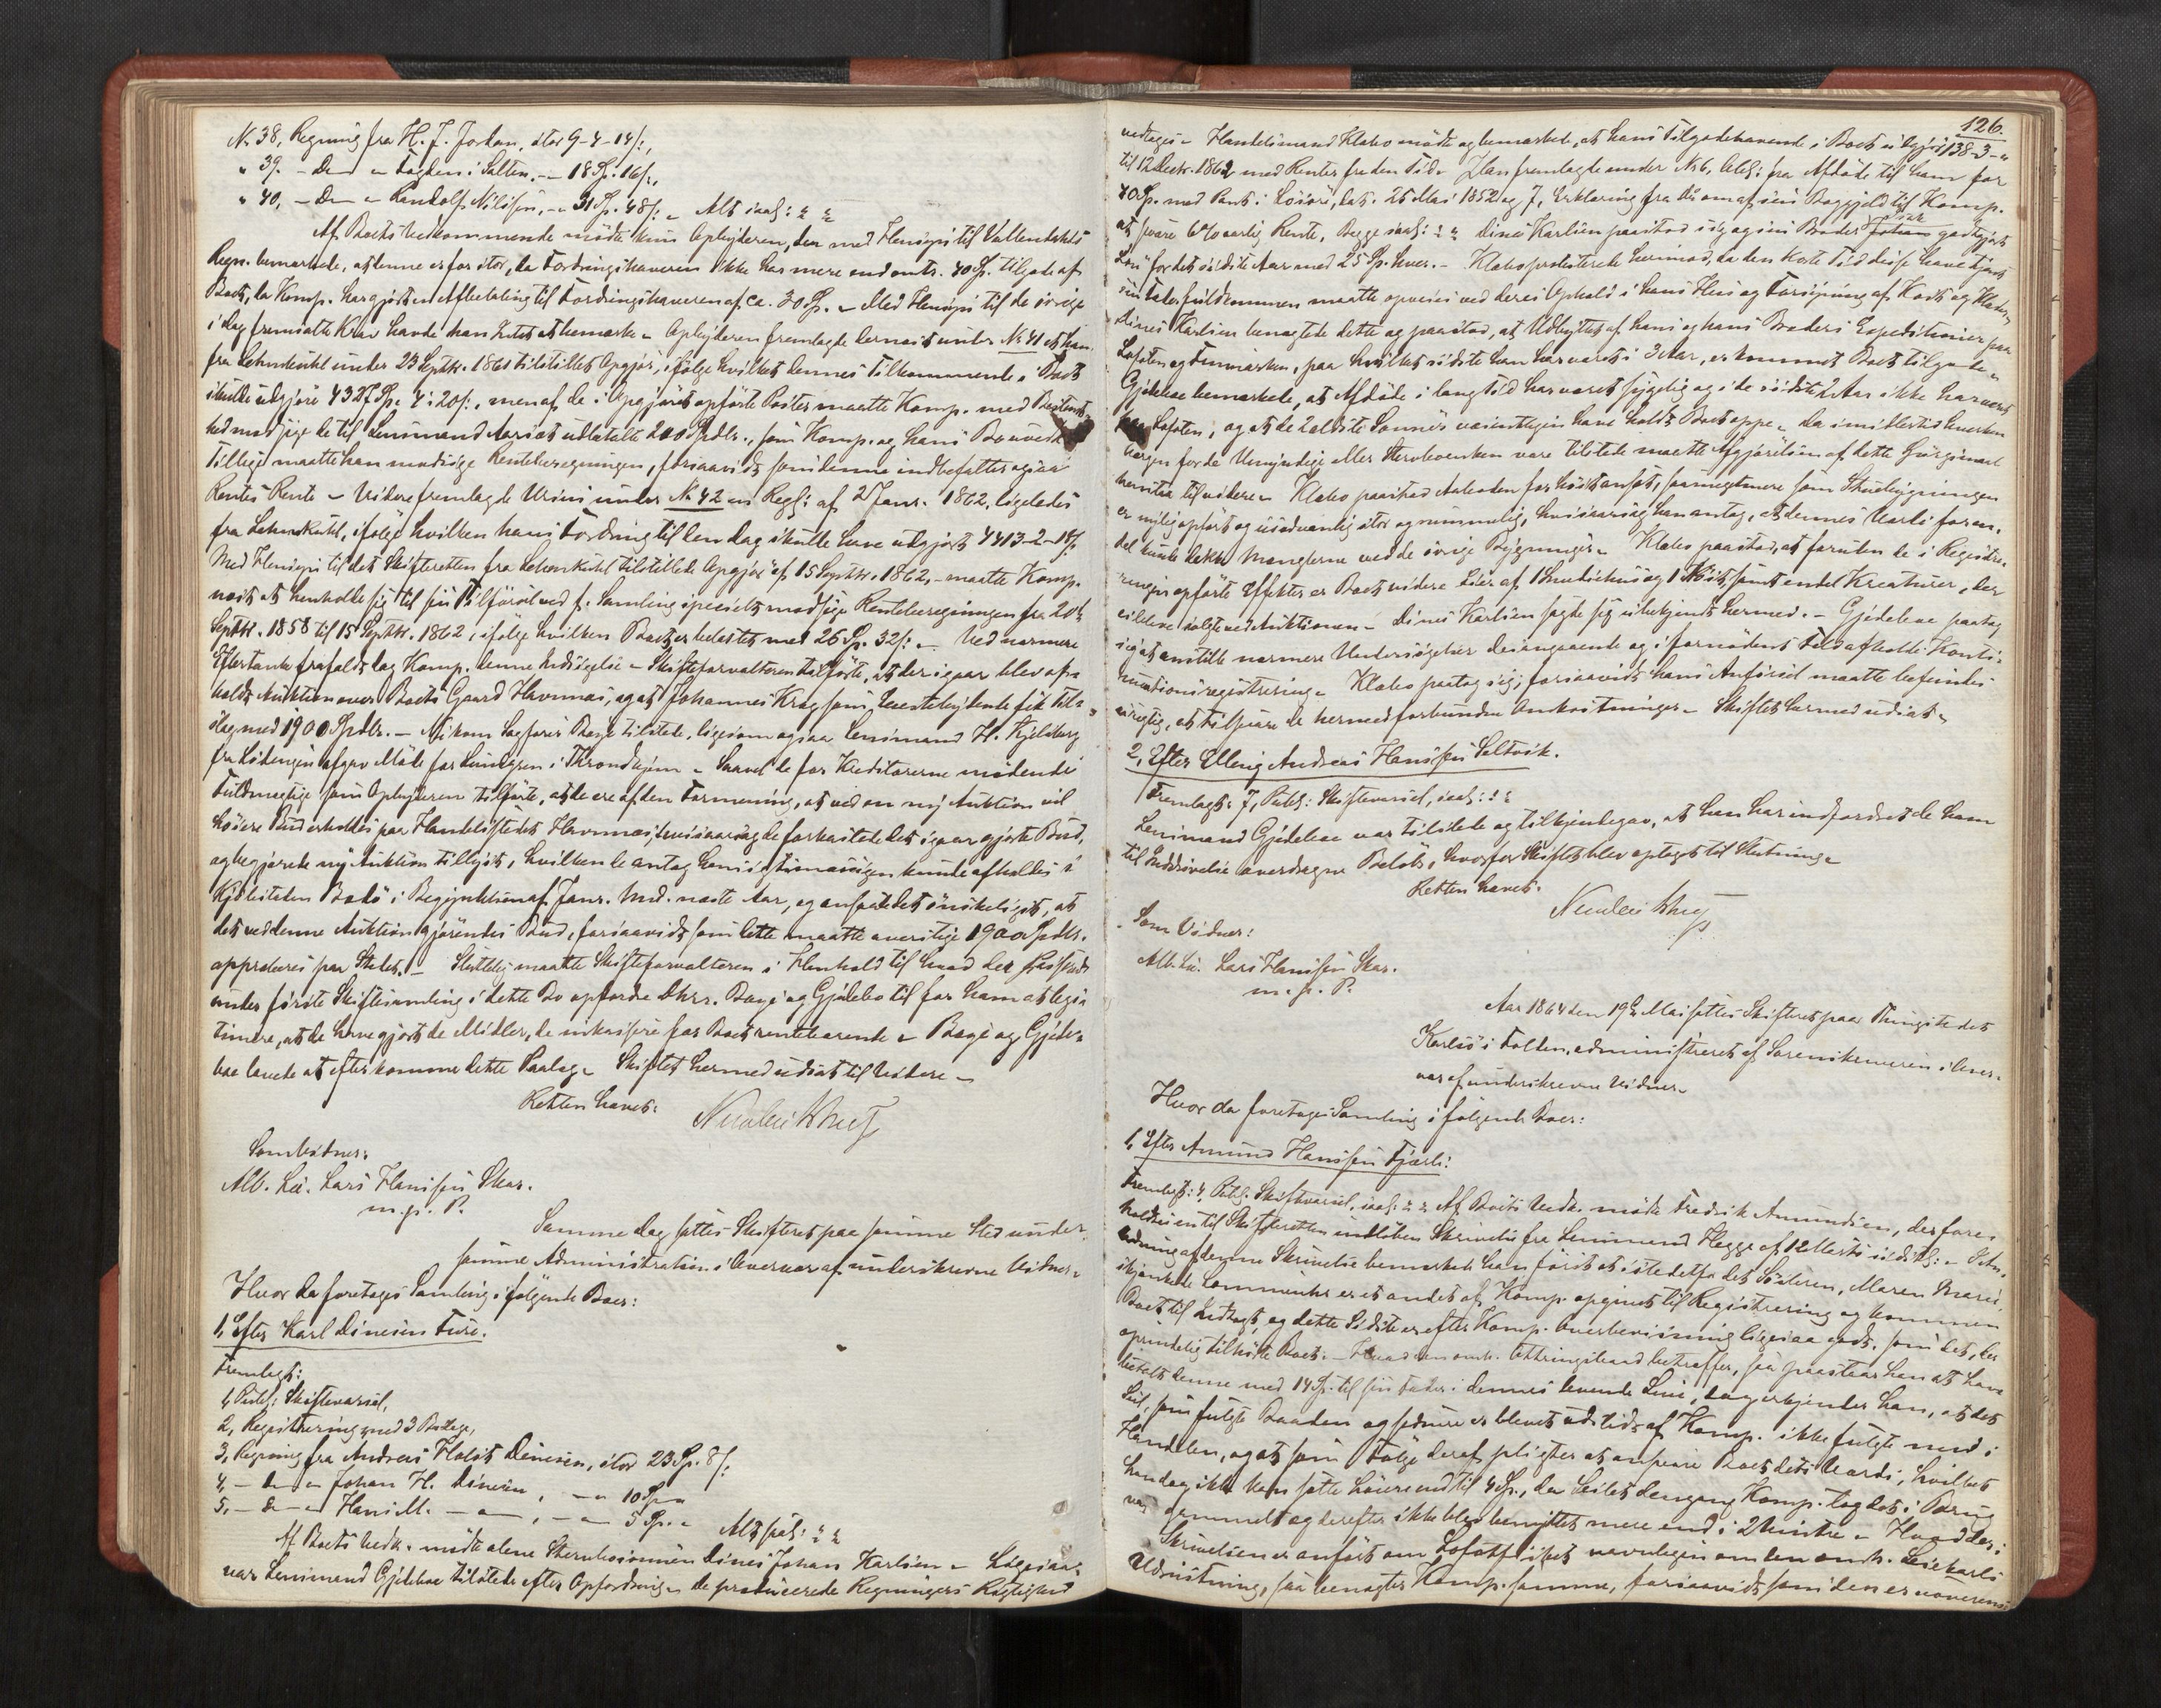 No 38, Regning fra H. J. Jordan, stor 9-4-14 s:,
" 39. - Do - Fogden i Salten. - - 18 Sp: 16 s.,
" 40, - Do - Randolf Nilssen, - - 31 Sp. 48 s: - Alt saal: " "
Af Boets Vedkommende mødte kun Opbyderen, der med Hensyn til
Regn. bemærkede, at denne er for stor, da Fordringshaveren ikke har mere end omtr. 40 Sp. tilgode af
Boet, da Komp. har gjort en Afbetaling til Fordringshaveren af ca. 30 Sp. - Med Hensyn til de øvrige
i dag fremsatte Krav havde han Intet at bemærke - Opbyderen fremlagde dernæst under No 41 et ham
fra Lehmkuhl under 23 Septbr. 1861 tilstillet Opgjør, ifølge hvilket dennes Tilkommende i Boet
skulde udgjøre 4327 Sp. 4: 20 s:, men af de i Opgjøret opførte Poster maatte Komp. med Bestemt-
hed modsige de til Lensmand udbetalte 200 Spdlr., som Komp. og hans
Tillige maatte han modsige Renteberegningen, forsaavidt som denne indbefatter ogsaa
Rentes Rente - Videre fremlagde under No 42 en Regg: af 2 Janr. 1862, ligeledes
fra Lehmkuhl, ifølge hvilken hans Fordring til den dag skulde have udgjort 4413-2-14 s.
Med Hensyn til det Skifteretten fra Lehmkuhl tilstillede Opgjør af 15 Septbr. 1862, - maatte Komp.
næst at henholde sig til sin Tilførsel ved f. Samling specielt modsige Renteberegningen fra 20de
Septbr. 1858 til 15 Septbr. 1862, ifølge hvilken Boet er belastet med 26 Sp. 32 s: - Ved nærmere
Eftertanke frafaldt dog Komp. denne Indsigelse - Skifteforvalteren tilførte, at der igaar blev af-
holdt Auktion over Boets Gaard Havnnæs, og at Johannes Krog som Høistbydende fik Til-
slag med 1900 Spdlr. - Nu kom Sagfører Bage tilstede, ligesom ogsaa Lensmand H. Kjelsberg
fra Lødingen afgav Møde for Lundgren i Throndhjem - Saavel de for Kreditorerne mødende
Fuldmægtige som Opbyderen tilførte, at de ere af den Formening, at ved en ny Auktion vil
høiere Bud erholdes paa Handelsstedet Havnnæs, hvisaarsag de forkastede det igaar gjorte Bud,
og begjærede ny Auktion tillyst, hvilken de antog hensigtsmæssigen kunde afholdes i
Kjøbstaden Bodø i Begyndelsen af Janr. Md. næste Aar, og ansaae det ønskeligst, at
det ved denne Auktion gjørendes Bud, forsaavidt som dette maatte overstige 1900 Spdlr.
approberes paa Stedet. - Sluttelig maatte Skifteforvalteren i Henhold til hvad der passerede
under første Skiftesamling i dette Bo opfordre Dhrr. Bage og Gjedebo til for ham at legi-
timere, at de have gjort de Midler, de inkassere for Boet rentebærende - Bage og Gjede-
boe lovede at efterkomme dette Paalæg - Skiftet hermed udsat til Videre -
Retten hævet:
Som Vidner:
Alb. Lie. Lars Hanssen Skar.
m. p. P.
Samme Dag sattes Skifteret paa samme Sted under
samme Administration i Overvær af underskrevne Vidner -
Hvor da foretoges Samling i følgende Boer:
1, Efter Karl Dinesen Fure.
Fremlagt:
1, Publ: Skiftevarsel,
2, Registrering med 3 Bilage,
3, Regning fra Andreas Holst Dinesen, stor 23 Sp. 8 s:
4, - Do - Johan H. Dinesen, - - 10 Sp -
5, - Do - Hans M. - - , - - 5 Sp. - Alt saal: " "
Af Boets Vedk. mødte alene Stervbosønnen Dines Johan Karlsen - Ligesaa
var Lensmand Gjedeboe tilstede efter Opfordring - de producerede Regningers Rigtighed
126.
vedtoges - Handelsmand Klæbo mødte og bemærkede, at hans Tilgodehavende i Boet udgjør 138-3-"
til 12 Decbr. 1862 med Renter fra den Tid - Han fremlagde under No 6, Oblg: fra Afdøde til ham for
40 Sp. med Pant i Løsøre, dat. 25 Mai 1852 og 7, Erklæring fra
at svare 6% aarlig Rente, Begge saal: " " Dines Karlsen paastod sig og sin Broder Johan godtgjort
Løn for det sidste Aar med 25 Sp. hver. - Klæbo protesterede herimod, da den korte Tid disse have tjent
sin Fader fuldkommen maatte opveies ved deres Ophold i hans Hus og Forsyning af Kost og Klæder
Dines Karlsen benægtede dette og paastod, at Udbyttet af hans og hans Broders Expeditioner paa
Lofoten og Finmarken, paa hvilket sidste han har været i 3 Aar, er kommet Boet tilgode -
Gjedeboe bemærkede, at Afdøde i lang Tid har været sygelig og i de sidste 2 Aar ikke har været
paa Lofoten, og at de 2 ældste Sønner væsentligen have holdt Boet oppe - da imidlertid hverken
Værgen for de Umyndige eller Stervboenken vare tilstede maatte Afgjørelsen af dette Spørgsmaal
henstaa til videre - Klæbo paastod Aaboden for høit ansat, saameget mere som Stuebygningen
er nylig opført og usædvanlig stor og rummelig, hvisaarsag han antog, at dennes Værdi foren-
del kunde dække Manglerne ved de øvrige Bygninger - Klæbo paastod, at foruden de i Registre-
ringen opførte Effekter er Boet videre Eier af 1 Smedehus og 1 samt endel Kreaturer, der
ei bleve solgte ved Auktionen - Dines Karlsen sagde sig ubekjendt hermed. - Gjedeboe paatog
sig at anstille nærmere Undersøgelser desangaaende og i fornødent Fald afholde Konti-
nuationsregistrering - Klæbo paatog sig, forsaavidt hans Anførsel maatte befindes
urigtig, at tilsvare de hermed forbundne Omkostninger - Skiftet hermed udsat -
2, Efter Elling Andreas Hanssen Seltvik.
Fremlagt: 7, Publ: Skiftevarsel, saal: " "
Lensmand Gjedeboe var tilstede og tilkjendegav, at han har indfordret de ham
til Inddrivelse overdragne Beløb, hvorfor Skiftet blev optaget til Slutning -
Retten hævet.
Som Vidner:
Alb. Lie. Lars Hanssen Skar.
m. p. P.
Aar 1864 den 19de Mai sattes Skifteret paa Thingstedet
Karlsø i Folden, administreret af Sorenskriveren i Over-
vær af underskrevne Vidner -
Hvor da foretoges Samling i følgende Boer:
1, Efter Amund Hanssen Fjærli:
Fremlagt: 4, Publ. Skiftevarsel, saal: " " Af Boets Vedk. mødte Fredrik Amundsen, der fore-
holdtes en til Skifteretten indløben Skrivelse fra Lensmand Hegge af 12 Marts sidstl: - I An-
ledning af denne Skrivelse bemærkede han først at istedetfor det Søsteren, Maren Marie,
skjænkede er et andet af Komp. opgivet til Registrering og kommen
Boet til Indtægt, og dette Sidste er efter Komp. Overbeviisning ligesaa godt som det, der
oprindelig tilhørte Boet. - Hvad den omh. Ottringsbaad betræffer, saa paastaar han at have
betalt denne med 14 Sp. til sin Fader i dennes levende Live, dog erkjender han, at det
Seil, som fulgte Baaden og senere er blevet udslidt af Komp. ikke fulgte med i
Handelen, og at som Følge deraf pligter at ansvare Boet dets Værdi, hvilket
han dog ikke kan sætte høiere end til 4 Sp., da Seilet dengang Komp. tog det i Brug
var gammelt og derefter ikke blev benyttet mere end i 2 Vintre - Hvad der i
Skrivelsen er anført om navnligen om den omh. Leiekarls
Udrustning, saa benægter Komp. samme, forsaavidt som den er